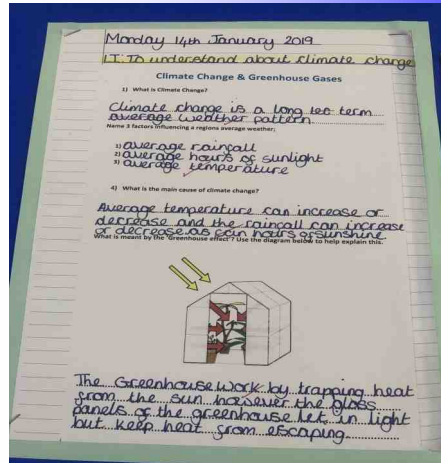 Monday 14th January 2019
LI To understand about climate change
Climate Change & Greenhouse Gases
1) What is Climate Change?
Climate change is a long term
average weather pattern.
Name 3 factors influencing a regions average weather;
1) average rainfall
2) average hours of sunlight
3) average temperature
4) What is the main cause of climate change?
Average temperature can increase or
decrease and the rainfall can increase
or decrease as can hours of sunshine
What is meant by the 'Greenhouse effect'? Use the diagram below to help explain this.
The Greenhouse work by trapping heat
from the sun however the glass
panels of the greenhouse let in light
but keep heat from escaping.